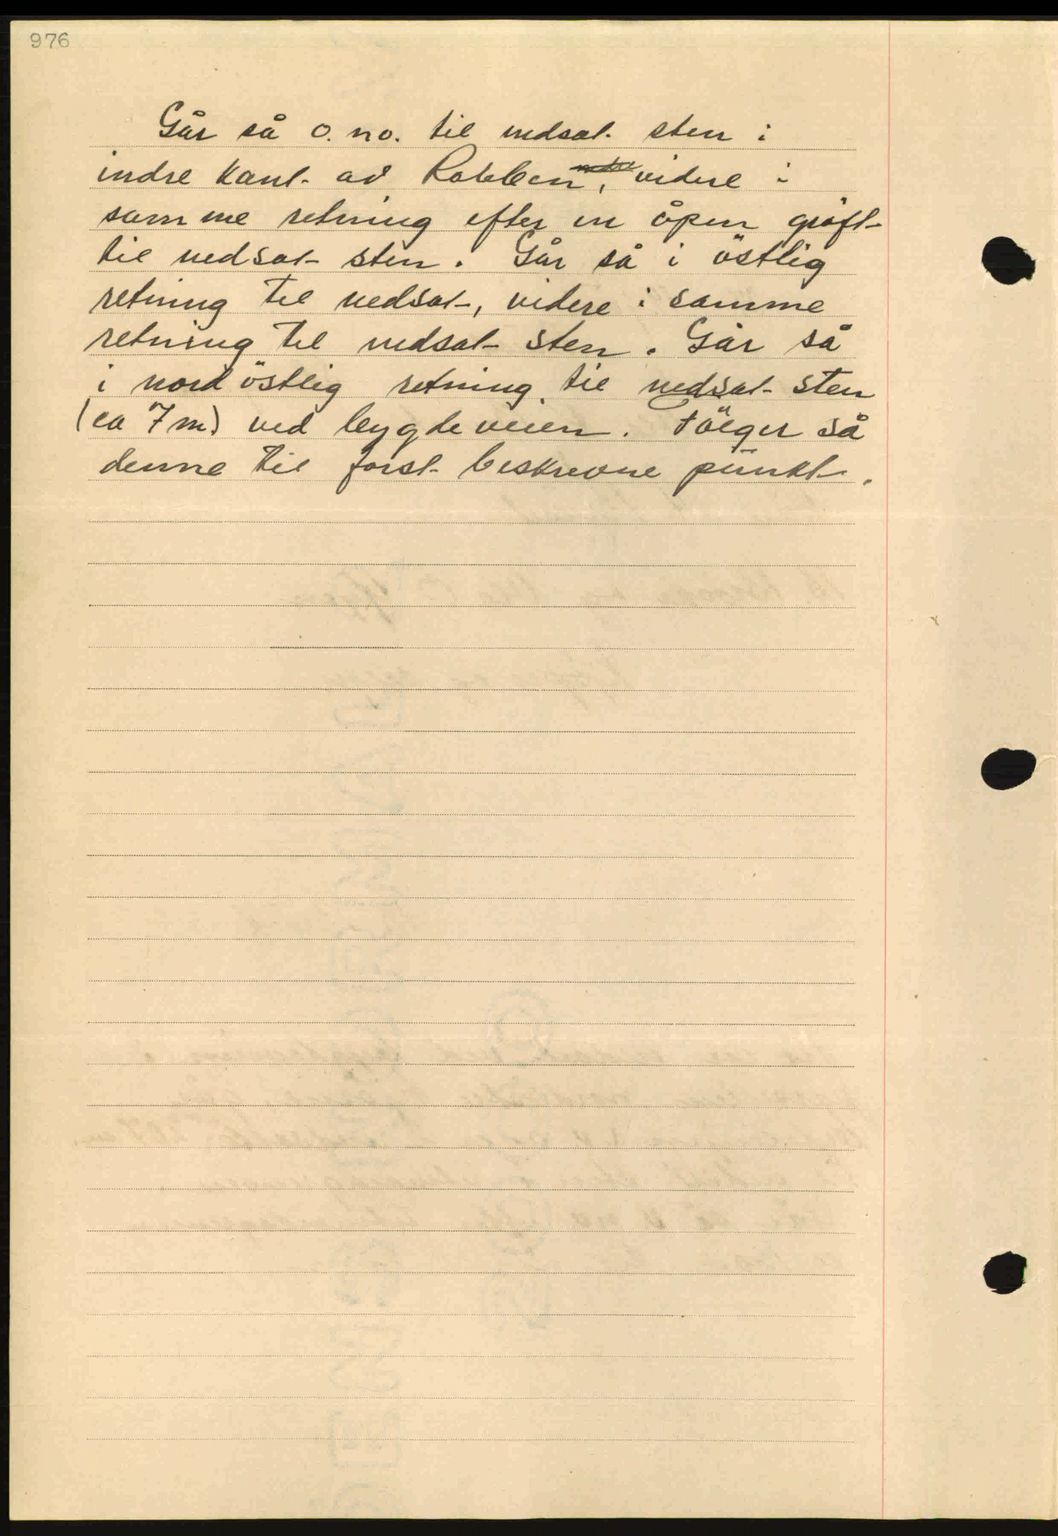 976
Går så o. no. til nedsat sten i
indre kant av Robben, videre i
samme retning efter en åpen gröft
til nedsat sten. Går så i östlig
retning til nedsat, videre i samme
retning til nedsat sten. Går så
i nordöstlig retning til nedsat sten
(ca 7 m) ved bygdeveien. Fölger så
denne til först beskrevne punkt.